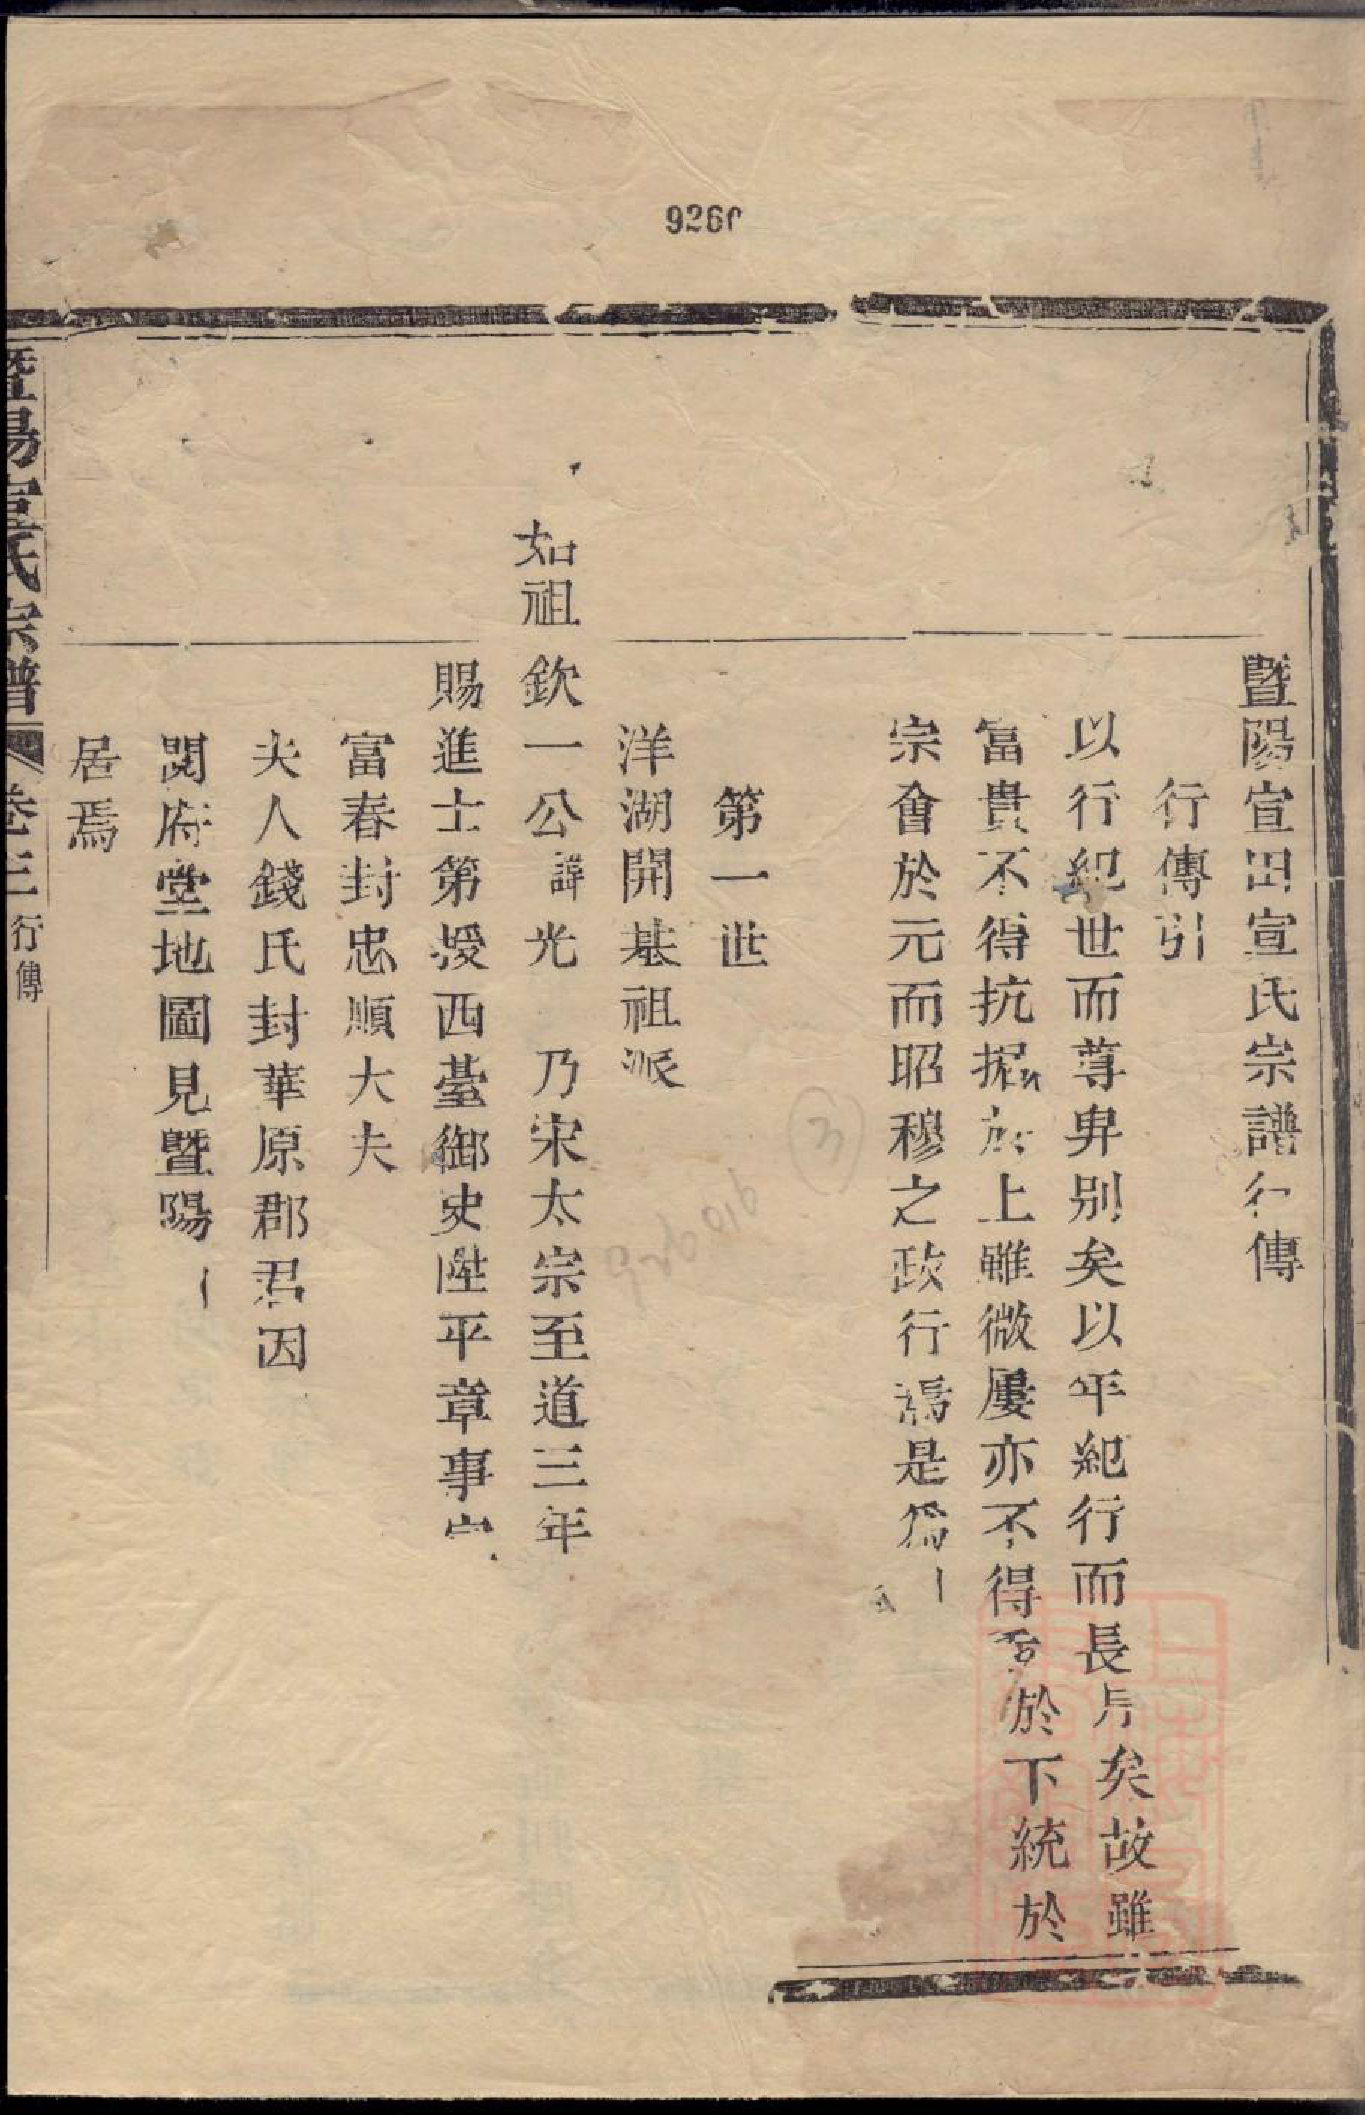 9260
暨陽宣田宣氏宗譜行傳
行傳引
以行紀世而尊卑别矣以年紀行而長 矣故雖
富貴不得抗 於上雖微屢亦不得 於下統於
宗會於元而昭穆之政行焉是爲
第一世
洋湖開基祖派
如祖 欽一公諱光 乃宋太宗至道三年
賜進士第授西臺御史陞平章事
富春封忠順大夫
夫人錢氏封華原郡君因
閱府堂地圖見暨陽
居焉
暨陽宣氏宗譜 卷三 行傳
③
926016